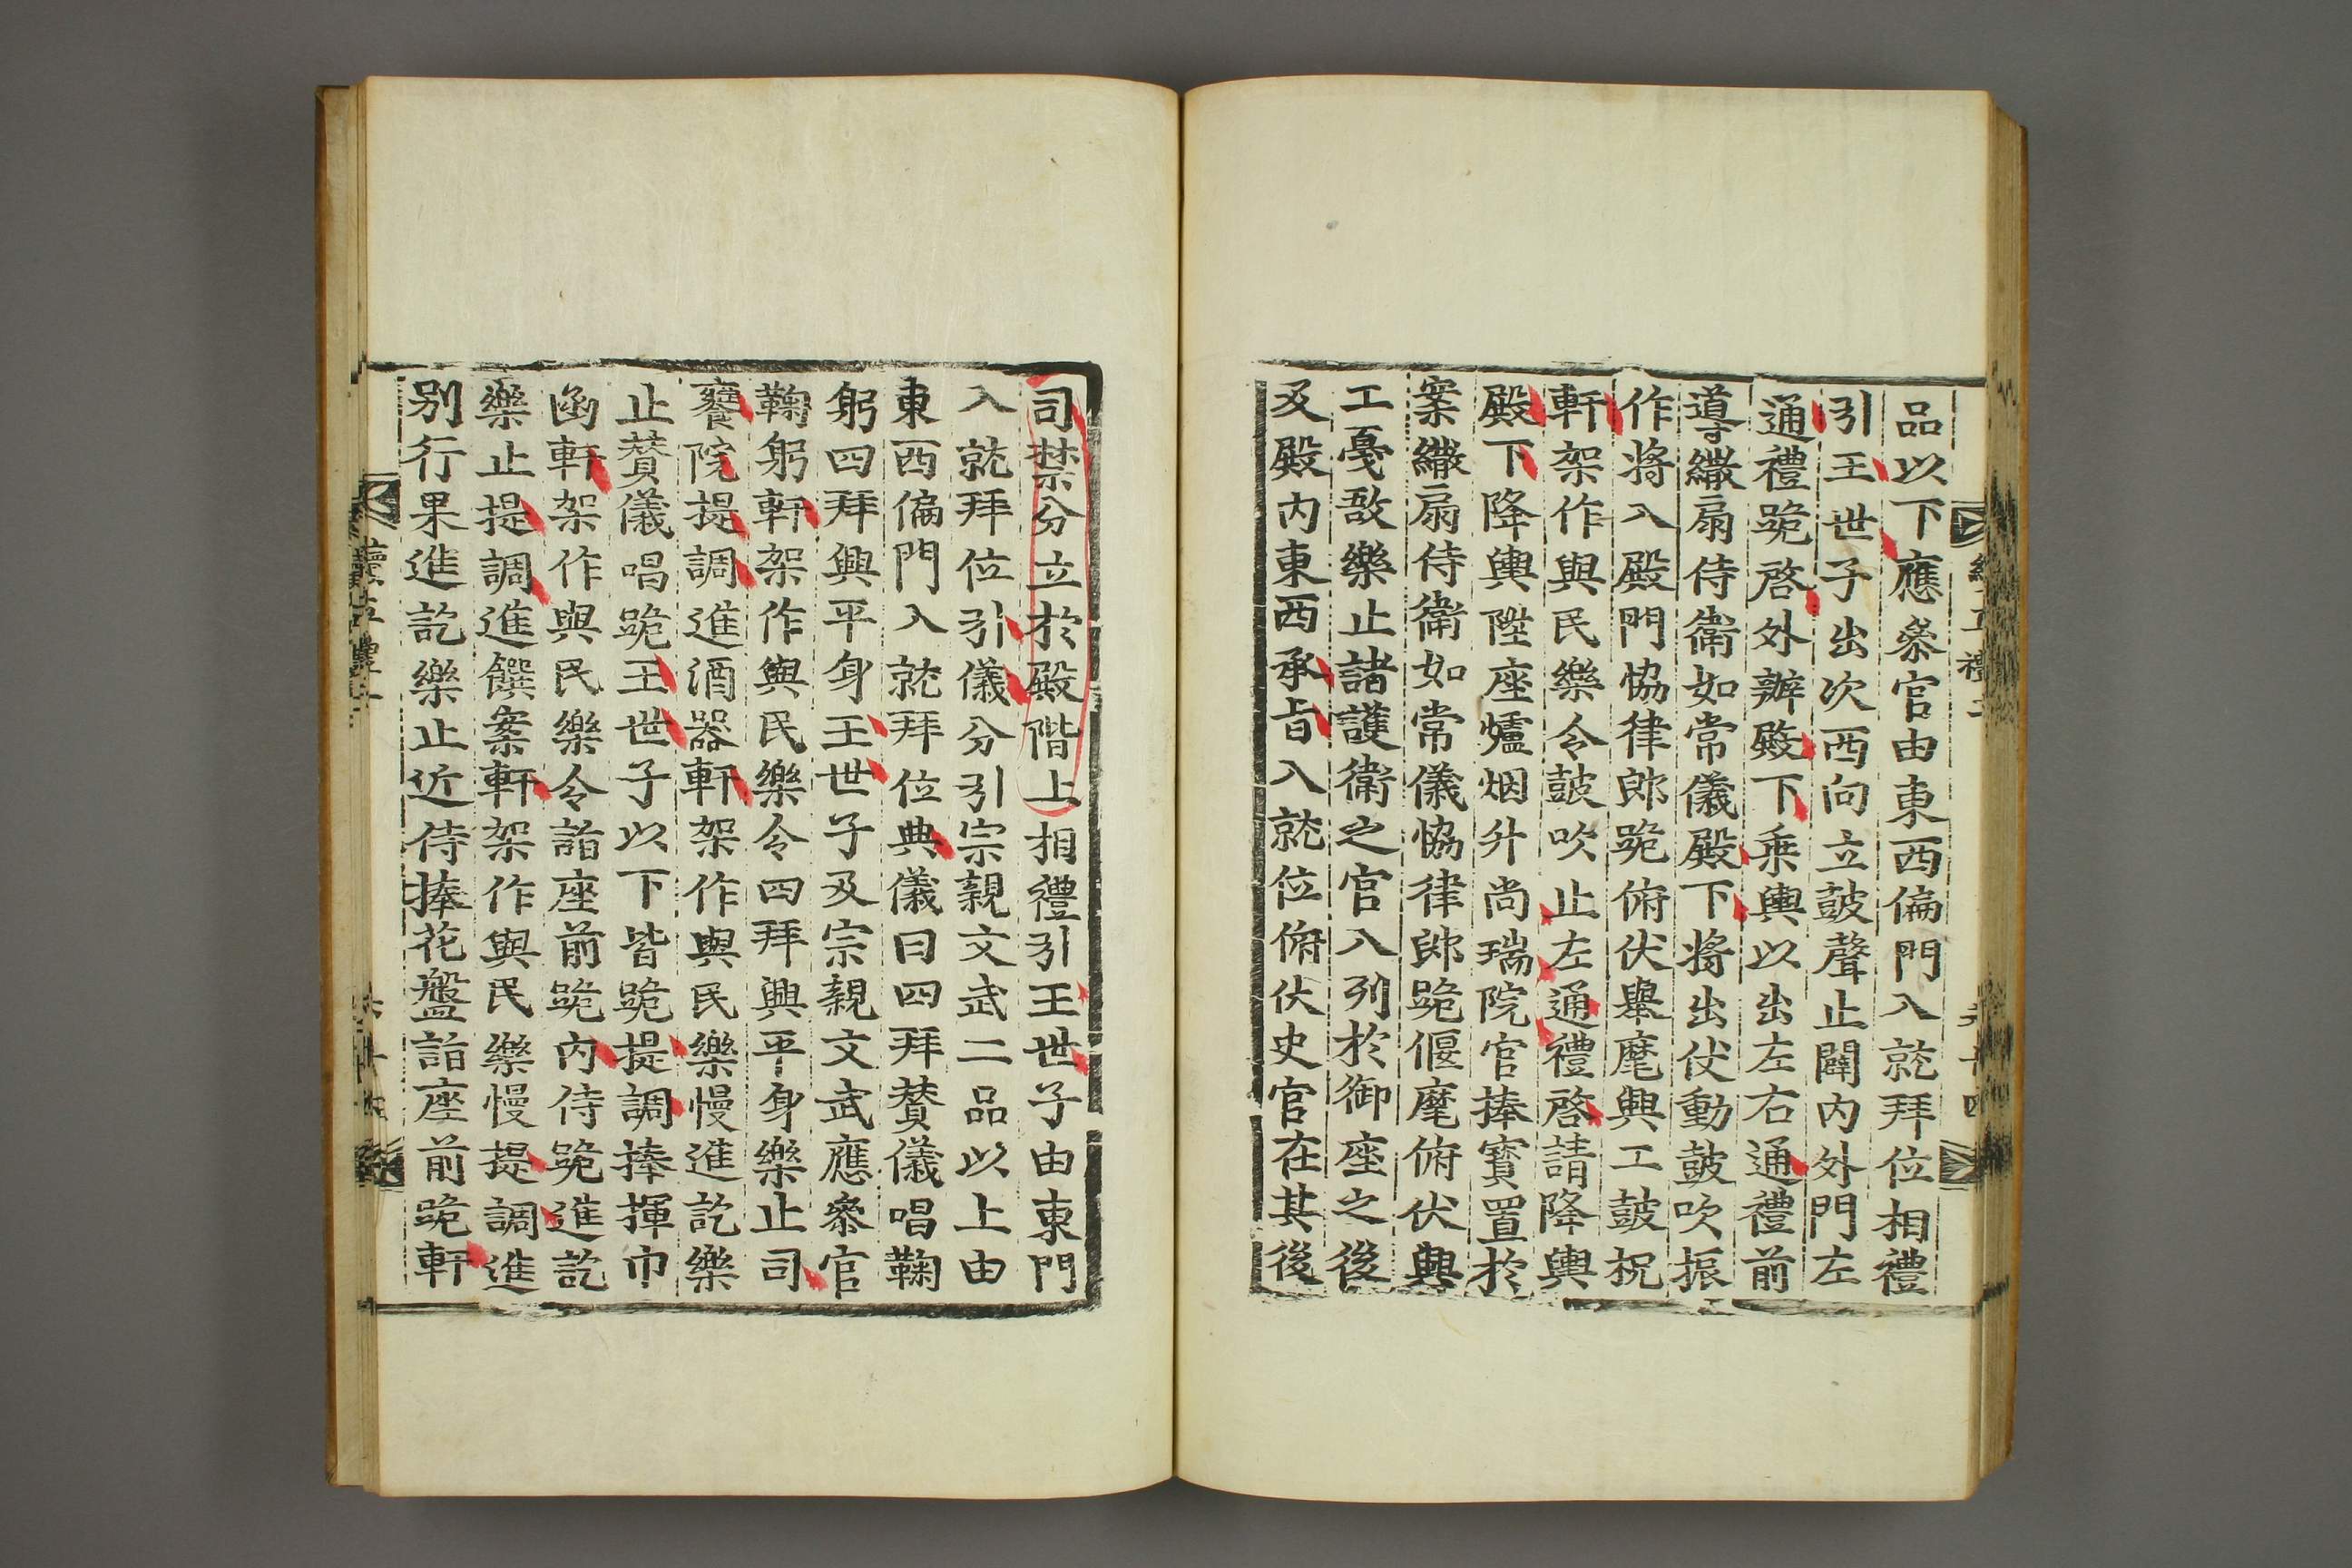 品以下應叅官由東西偏門入就拜位相禮
引王世子出次西向立鼓聲止闢內外門左
通禮跪啓外辦殿下乗輿以出左右通禮前
導繖扇侍衛如常儀殿下將出仗動鼓吹振
作將入殿門協律郎跪俯伏舉麾興工鼓柷
軒架作與民樂令鼓吹止左通禮啓請降輿
殿下降輿陞座爐烟升尚瑞院官捧寳置於
案繖扇侍衛如常儀協律郎跪偃麾俯伏興
工戞敔樂止諸護衛之官入列於御座之後
及殿內東西承旨入就位俯伏史官在其後
司禁分立於殿階上相禮引王世子由東門
入就拜位引儀分引宗親文武二品以上由
東西偏門入就拜位典儀曰四拜賛儀唱鞠
躬四拜興平身王世子及宗親文武應叅官
鞠躬軒架作與民樂令四拜興平身樂止司
饔院提調進酒器軒架作與民樂慢進訖樂
止賛儀唱跪王世子以下皆跪提調捧揮巾
函軒架作與民樂令詣座前跪內侍跪進訖
樂止提調進饌案軒架作與民樂慢提調進
别行果進訖樂止近侍捧花盤詣座前跪軒